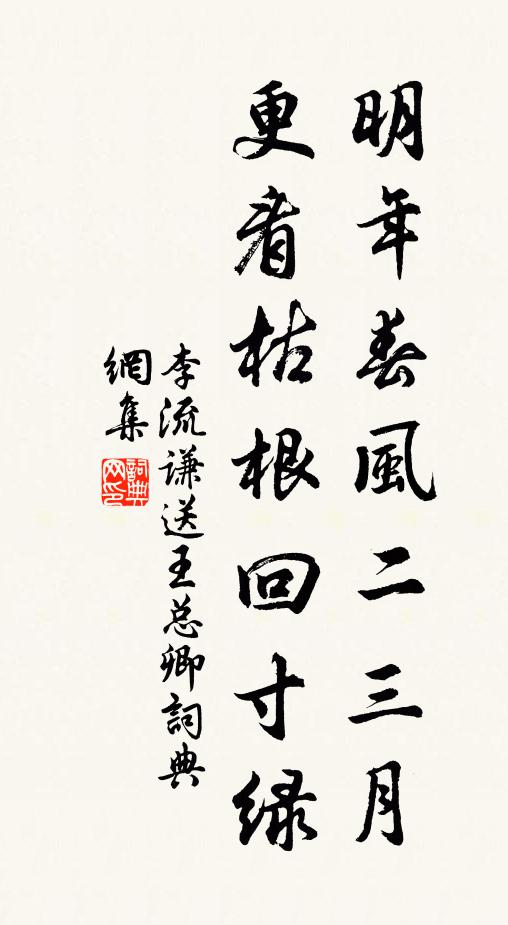 明年春風二三月
更看枯根回寸緑
李流谦送王总卿詞典
網集
詞典網印